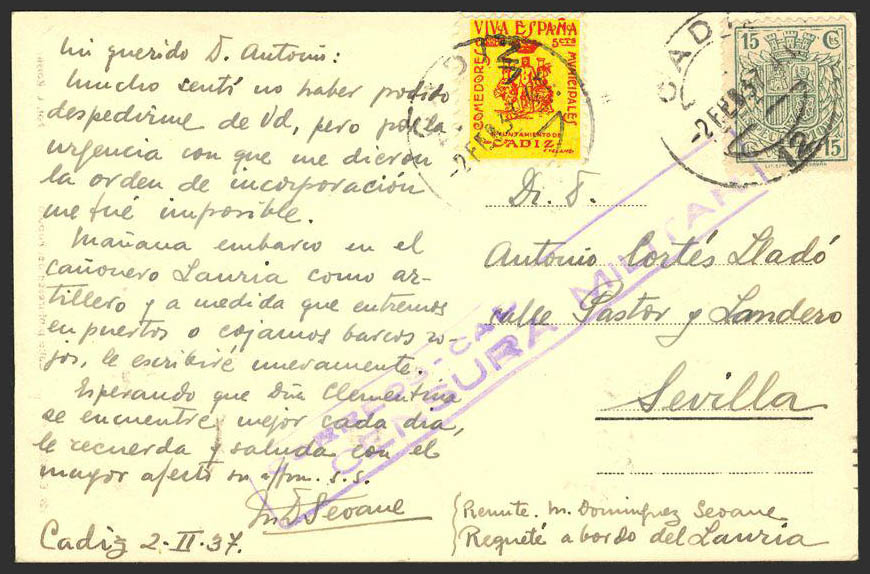 Mi querido D. Antonio:
Mucho sentí no haber podido
despedirme de Vd, pero por la
urgencia con que me dieron
la orden de incorporación
me fué imposible.
Mañana embarco en el
cañonero Lauria como ar-
tillero y a medida que entremos
en puertos o cojamos barcos ro-
jos, le escribiré nuevamente.
Esperando que Dña Clementina
se encuentre mejor cada dia,
le recuerda y saluda con el
mayor afecto su affmo. s.s.
M. D. Seoane
Cadiz 2-II-37.
VIVA ESPAÑA
5 CTS
COMEDORES
MUNICIPALES
AYUNTAMIENTO DE
CADIZ
CADIZ
-2 FEB 37
15 Cs
15
CADIZ
-2 FEB 37
Dr. D.
Antonio Cortés Lladó
calle Pastor y Landero
Sevilla
CORREOS-CADIZ
CENSURA MILITAR
Remite. M. Dominguez Seoane
Requeté a bordo del Lauria